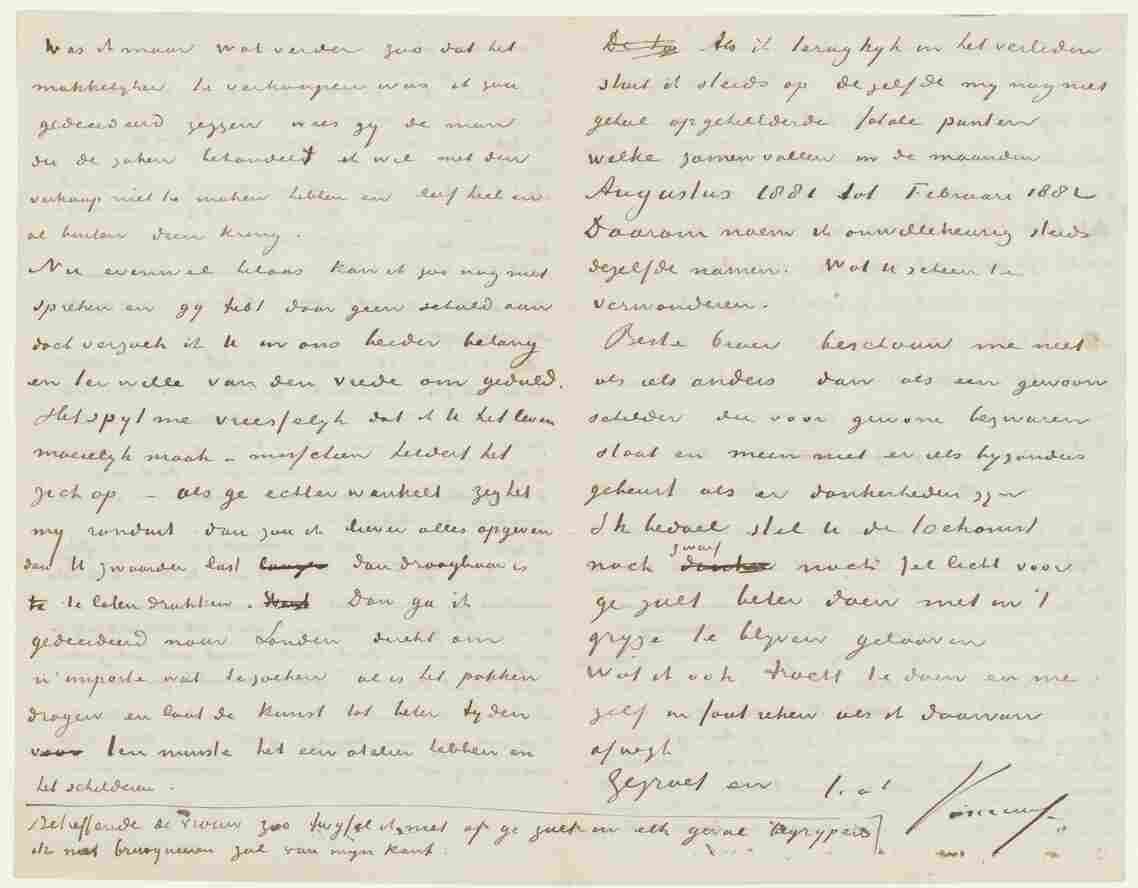 Was ik maar wat verder zoo dat het
makkelijker te verkoopen was ik zou
gedecideerd zeggen wees gy de man
die de zaken behandelt ik wil met den
verkoop niet te maken hebben en leef heel en
al buiten dien kring.
Nu evenwel helaas kan ik zoo nog niet
spreken en gy hebt daar geen schuld aan
doch verzoek ik U in ons beider belang
en ter wille van den vrede om geduld.
Het spyt me vreesselyk dat ik U het leven
moeielyk maak – misschien heldert het
zich op – als ge echter wankelt zeg het
my ronduit dan zou ik liever alles opgeven
dan U zwaarder last dan draagbaar is
te laten drukken. Dan ga ik
gedecideerd naar Londen direkt om
n'importe wat te zoeken al is het pakken
dragen en laat de kunst tot beter tyden
ten minste het een atelier hebben en
het schilderen.
Als ik terugkyk in het verleden
stuit ik steeds op dezelfde my nog niet
geheel opgehelderde fatale punten
welke zamenvallen in de maanden
Augustus 1881 tot Februari 1882
Daarom noem ik onwillekeurig steeds
dezelfde namen. Wat U scheen te
verwonderen.
Beste broer beschouw me niet
als iets anders dan als een gewoon
schilder die voor gewone bezwaren
staat en meen niet er iets byzonders
gebeurt als er donkerheden zyn
Ik bedoel stel U de toekomst
noch zwart noch hel licht voor
ge zult beter doen met in 't
gryze te blyven gelooven
Wat ik ook tracht te doen en me
zelf in fout reken als ik daarvan
afwyk
Gegroet en t.a.t. Vincent
Betreffende de vrouw zoo twyfel ik niet of ge zult in elk geval begrypen
ik niet bruusqueren zal van mijn kant.